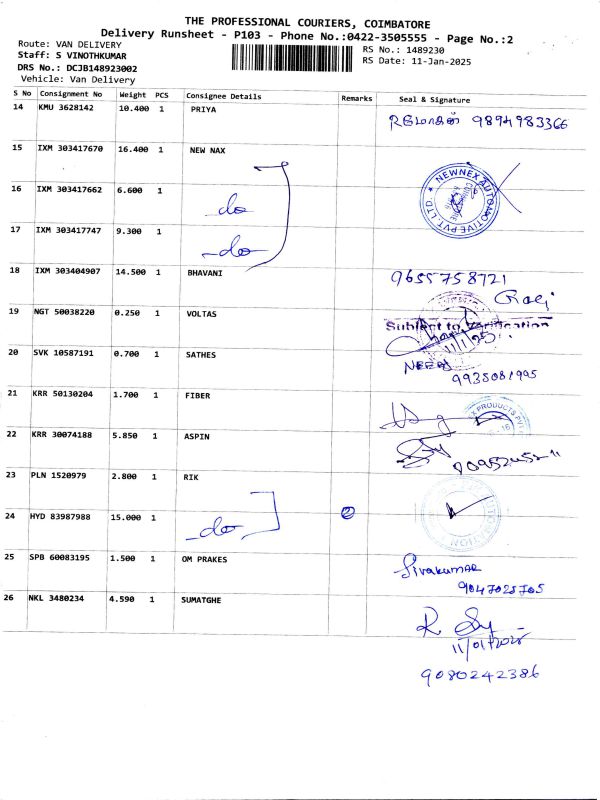 THE PROFESSIONAL COURIERS, COIMBATORE
Delivery Runsheet - P103 - Phone No.:0422-3505555 - Page No.:2
Route: VAN DELIVERY
Staff: S VINOTHKUMAR
DRS No.: DCJB148923002
Vehicle: Van Delivery
RS No.: 1489230
RS Date: 11-Jan-2025
S No Consignment No Weight PCS Consignee Details Remarks Seal & Signature
14 KMU 3628142 10.400 1 PRIYA
9894983366
15 IXM 303417670 16.400 1 NEW NAX
NEWNEX AUTOMOTIVE PVT. LTD. ★
16 IXM 303417662 6.600 1 do
17 IXM 303417747 9.300 1 do
18 IXM 303404907 14.500 1 BHAVANI
9655758721
19 NGT 50038220 0.250 1 VOLTAS
Subject to Verification
11/1/25
20 SVK 10587191 0.700 1 SATHES
9935081995
21 KRR 50130204 1.700 1 FIBER
PRODUCTS PVT
22 KRR 30074188 5.850 1 ASPIN
23 PLN 1520979 2.800 1 RIK
24 HYD 83987988 15.000 1 do 2
25 SPB 60083195 1.500 1 OM PRAKES
Sivakumar
26 NKL 3480234 4.590 1 SUMATGHE
11/01/2025
9080242386